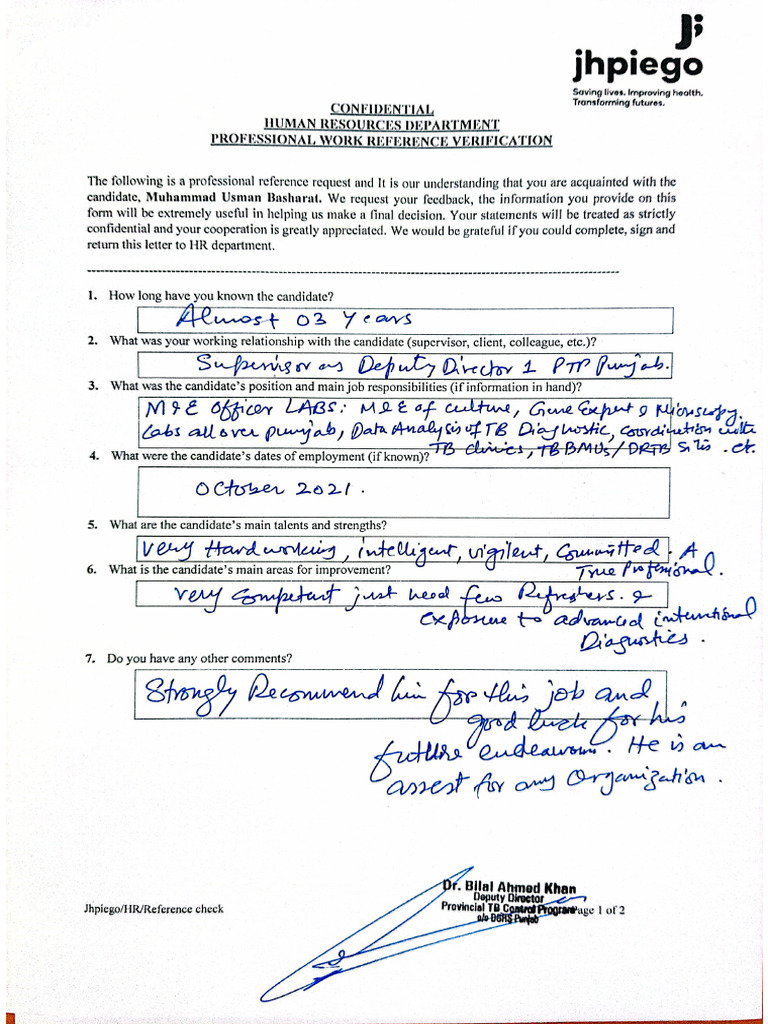 jhpiego
Saving lives. Improving health.
Transforming futures.
CONFIDENTIAL
HUMAN RESOURCES DEPARTMENT
PROFESSIONAL WORK REFERENCE VERIFICATION
The following is a professional reference request and It is our understanding that you are acquainted with the
candidate, Muhammad Usman Basharat. We request your feedback, the information you provide on this
form will be extremely useful in helping us make a final decision. Your statements will be treated as strictly
confidential and your cooperation is greatly appreciated. We would be grateful if you could complete, sign and
return this letter to HR department.
1. How long have you known the candidate?
Almost 03 Years
2. What was your working relationship with the candidate (supervisor, client, colleague, etc.)?
Supervisor as Deputy Director 1 PTP Punjab.
3. What was the candidate's position and main job responsibilities (if information in hand)?
M&E Officer LABS: M&E of culture, Gene Expert & Microscopy
Labs all over punjab, Data Analysis of TB Diagnostic, coordination with
TB clinics, TB BMUs/DRTB Sites. etc.
4. What were the candidate's dates of employment (if known)?
October 2021.
5. What are the candidate's main talents and strengths?
Very Hardworking, intelligent, vigilent, Committed. A
True Professional.
6. What is the candidate's main areas for improvement?
Very Competent just need few Refreshers. &
exposure to advanced international
Diagnostics.
7. Do you have any other comments?
Strongly Recommend him for this job and
good luck for his
future endeavours. He is an
assest for any Organization.
Dr. Bilal Ahmed Khan
Deputy Director
Provincial TB Control Program
o/o DGHS Punjab
Jhpiego/HR/Reference check
Page 1 of 2